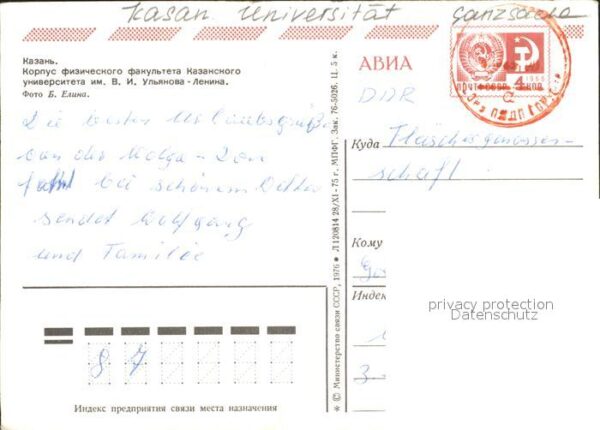 Kasan. Universität Ganzsache
Казань.
Корпус физического факультета Казанского
университета им. В. И. Ульянова-Ленина.
Фото Б. Елина.
Die besten Urlaubsgrüße
von der Wolga - Don
fahrt bei schönem Wetter
sendet Wolfgang
und Familie
87
Индекс предприятия связи места назначения
* © Министерство связи СССР, 1976 * Л 120814 28/XI-75 г. МПФГ. Зак. 76-5026. Ц. 5 к.
АВИА
ПОЧТА СССР 4 КОП
1966
DDR
Куда Fleischergenossen-
schaft
Кому
Индекс
3
privacy protection
Datenschutz